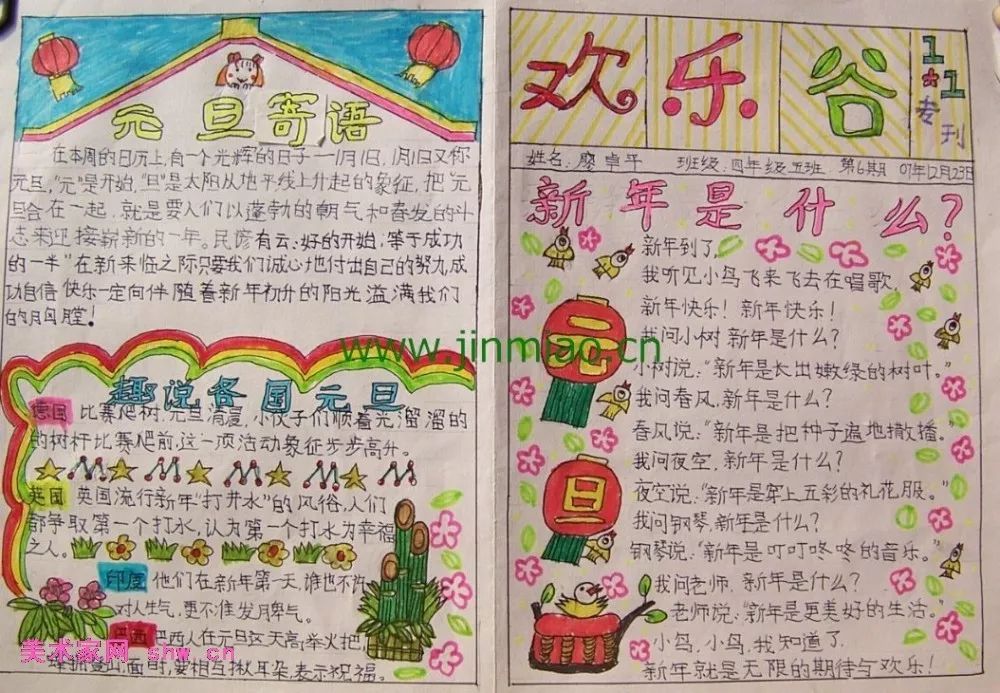 元旦寄语
在本周的日历上,有一个光辉的日子——1月1日,1月1日又称
元旦,"元"是开始,"旦"是太阳从地平线上升起的象征,把"元
旦合在一起,就是要人们以蓬勃的朝气和奋发的斗
志来迎接崭新的一年。民谚有云:好的开始,等于成功
的一半"在新来临之际只要我们诚心地付出自己的努力,成
功自信快乐一定向伴随着新年初升的阳光溢满我们
的胸膛!
趣说各国元旦
德国 比赛爬树,元旦清晨,小伙子们顺着光溜溜的
的树杆比赛爬前,这一项活动象征步步高升。
英国 英国流行新年"打井水"的风俗,人们
都争取第一个打水,认为第一个打水为幸福
之人。
印度 他们在新年第一天,谁也不许
对人生气,更不准发脾气。
巴西 巴西人在元旦这天高举火把,
面时,要相互揪耳朵,表示祝福。
欢乐谷
1*1
专刊
姓名:廖卓平 班级:四年级五班 第6期 07年12月23日
新年是什么?
新年到了,
我听见小鸟飞来飞去在唱歌,
新年快乐!新年快乐!
我问小树,新年是什么?
小树说:"新年是长出嫩绿的树叶。"
我问春风,新年是什么?
春风说:"新年是把种子遍地撒播。"
我问夜空,新年是什么?
夜空说:"新年是穿上五彩的礼花服。"
我问钢琴,新年是什么?
钢琴说:"新年是叮叮咚咚的音乐。"
我问老师,新年是什么?
老师说:"新年是更美好的生活。"
小鸟,小鸟,我知道了,
新年就是无限的期待与欢乐!
元
旦
www.jinmiao.cn
美术家网 snw.cn